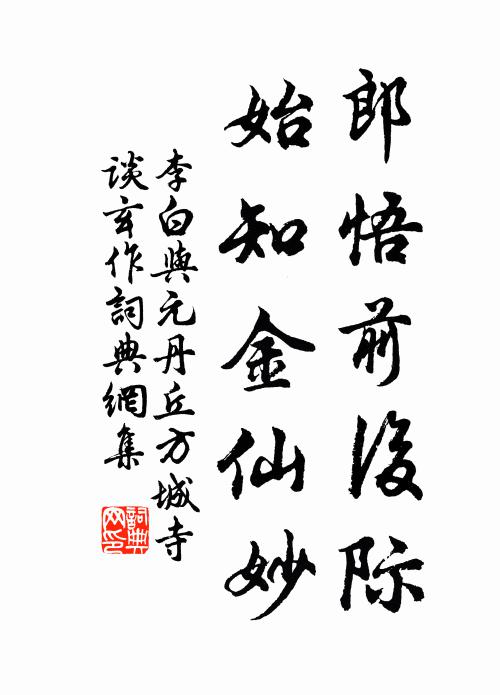 郎悟前後际
始知金仙妙
李白與元丹丘方城寺
談玄作詞典網集
詞典網印